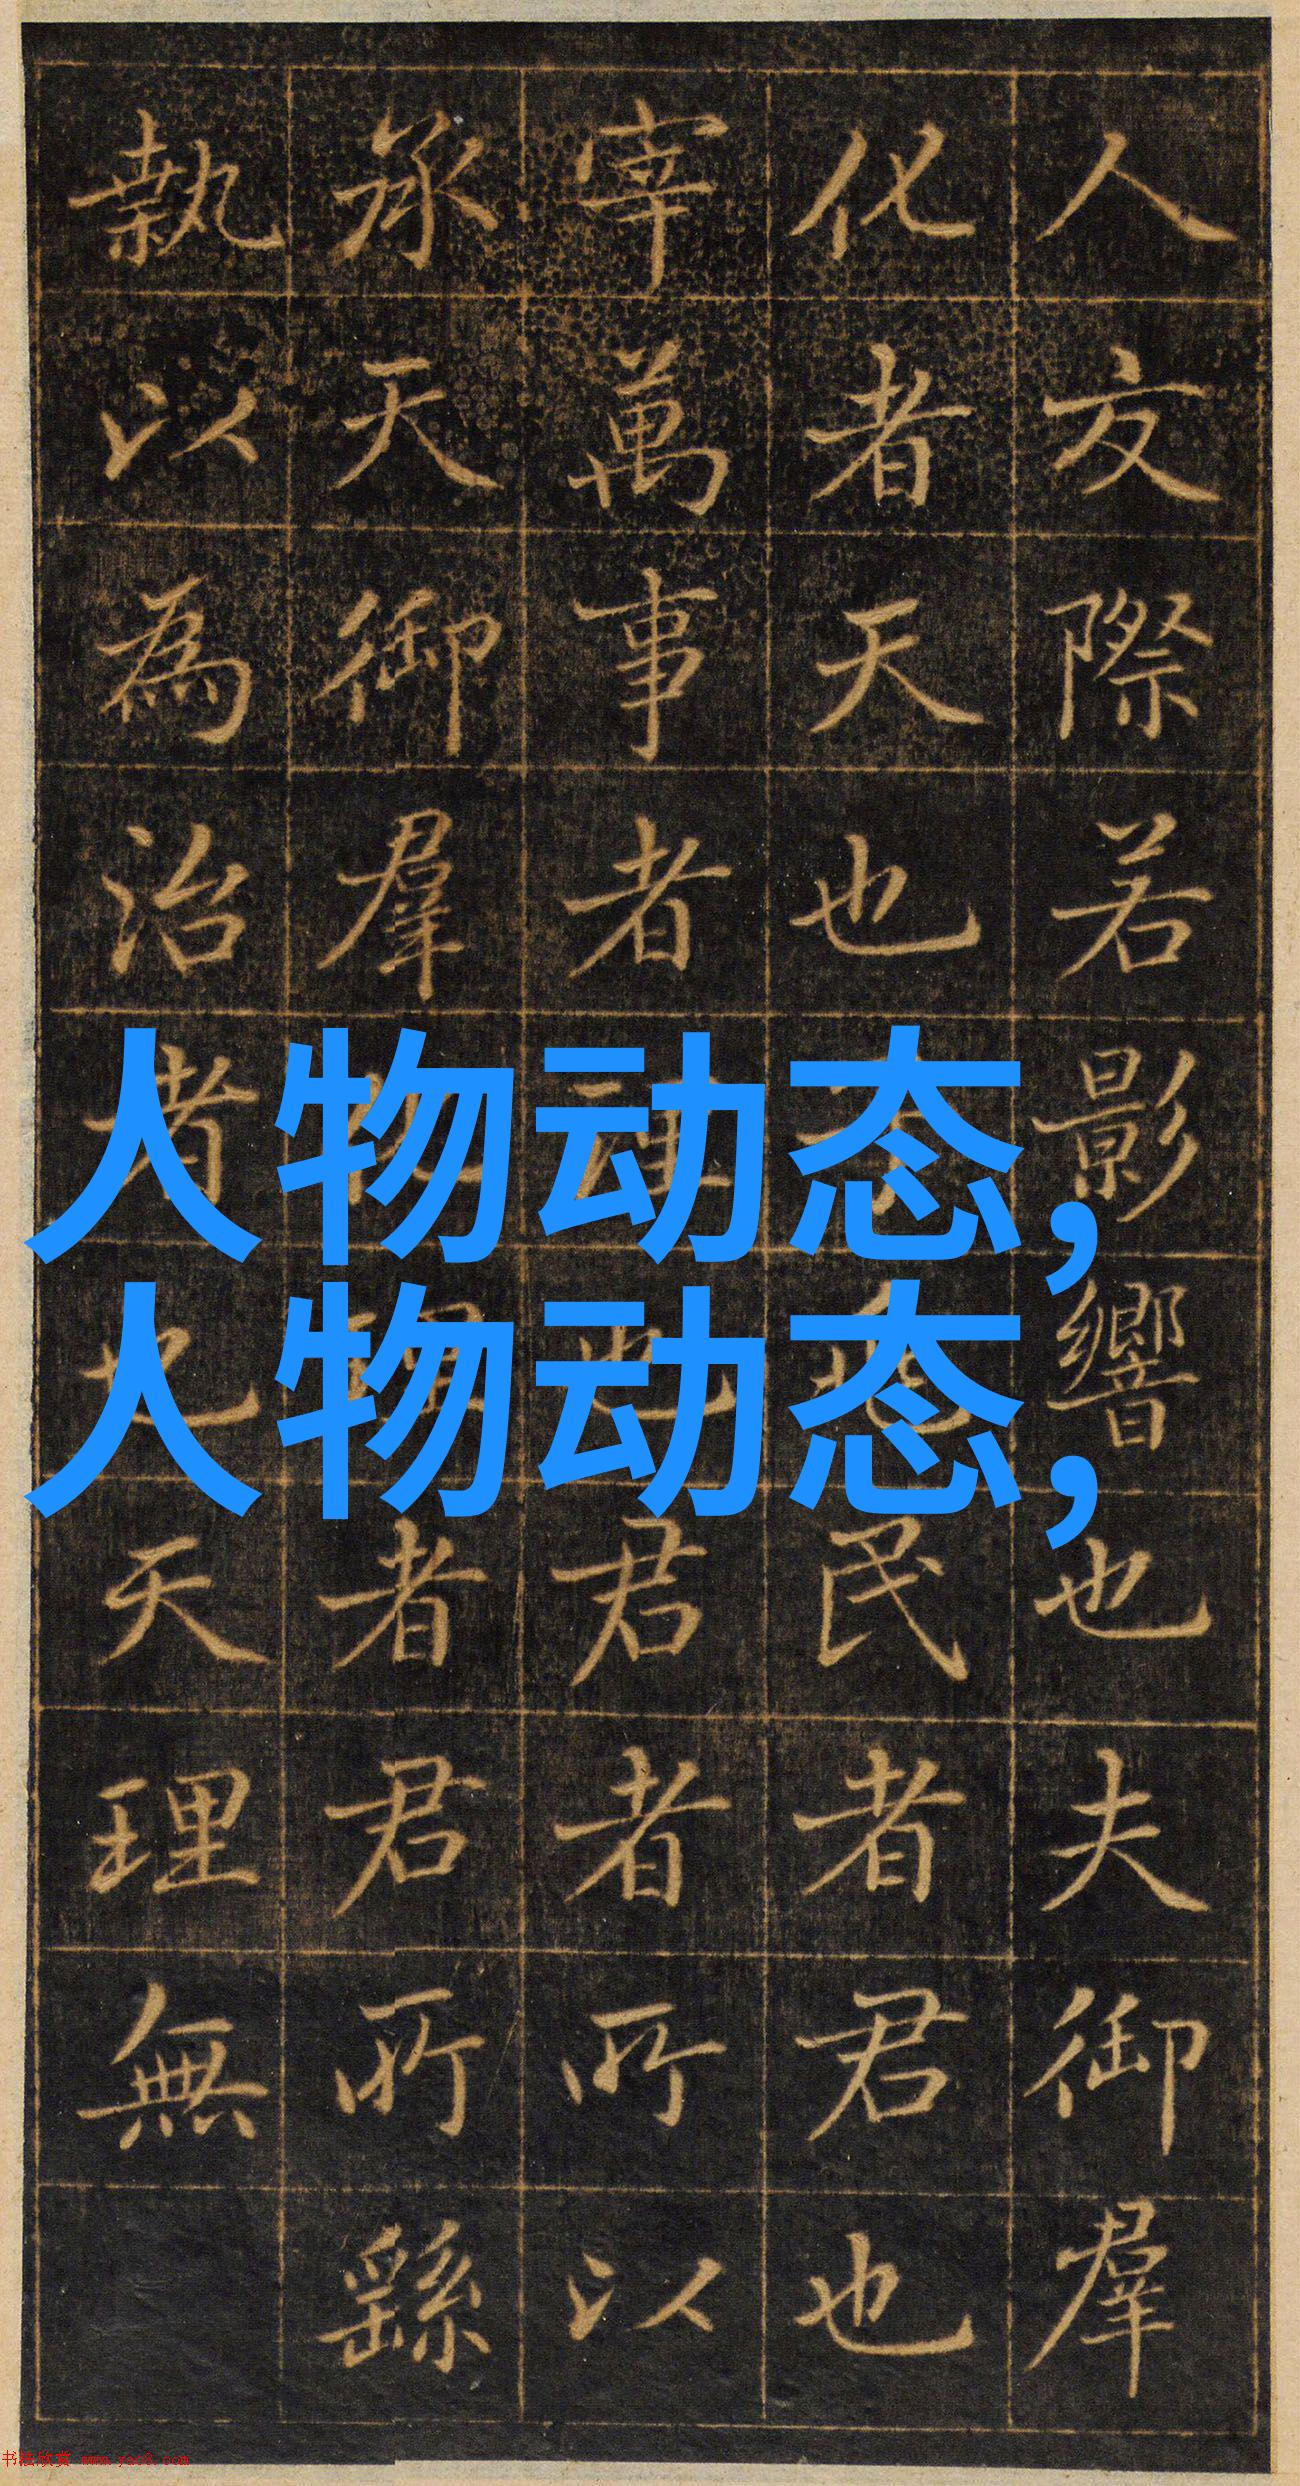 人友際若影響也夫御羣
化者天也民者君也
宰萬事者也君者所以
承天御羣者君所繇
執以為治者也天理無
人物动态,
人物动态,
书法欣赏 www.yac8.com